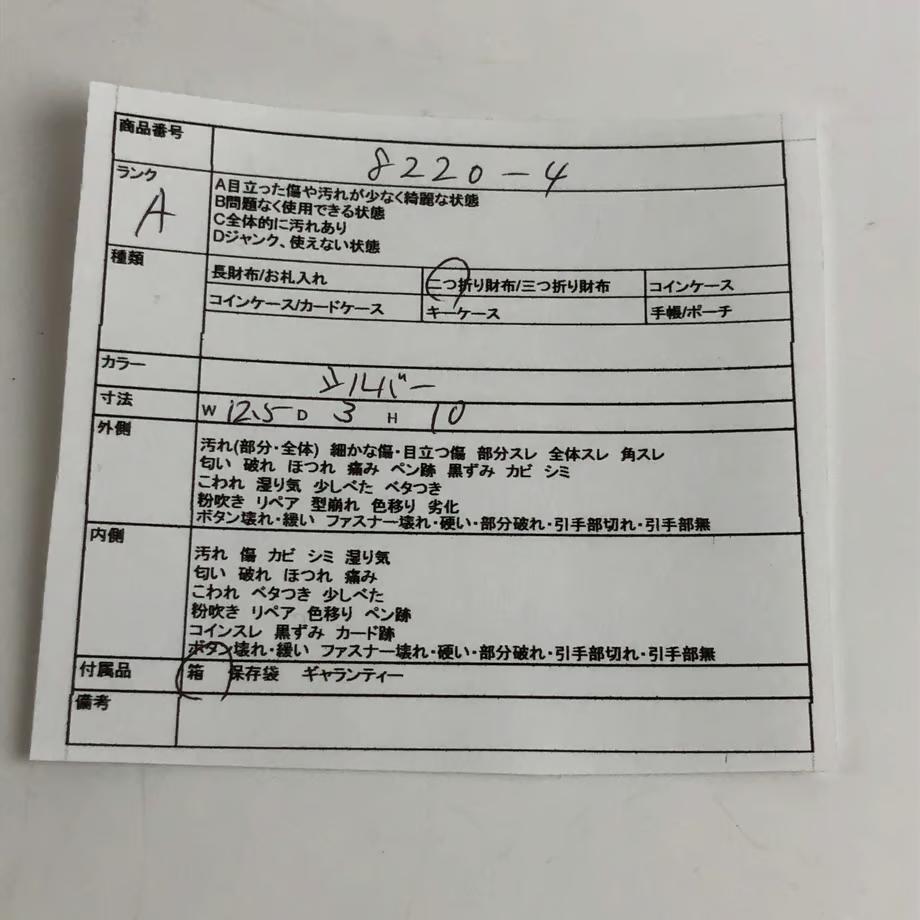 商品番号 8220-4
ランク A
A目立った傷や汚れが少なく綺麗な状態
B問題なく使用できる状態
C全体的に汚れあり
Dジャンク、使えない状態
種類
長財布/お札入れ 二つ折り財布/三つ折り財布 コインケース
コインケース/カードケース キーケース 手帳/ポーチ
カラー シルバー
寸法 W 12.5 D 3 H 10
外側
汚れ(部分・全体) 細かな傷・目立つ傷 部分スレ 全体スレ 角スレ
匂い 破れ ほつれ 痛み ペン跡 黒ずみ カビ シミ
こわれ 湿り気 少しべた ベタつき
粉吹き リペア 型崩れ 色移り 劣化
ボタン壊れ・緩い ファスナー壊れ・硬い・部分破れ・引手部切れ・引手部無
内側
汚れ 傷 カビ シミ 湿り気
匂い 破れ ほつれ 痛み
こわれ ベタつき 少しべた
粉吹き リペア 色移り ペン跡
コインスレ 黒ずみ カード跡
ボタン壊れ・緩い ファスナー壊れ・硬い・部分破れ・引手部切れ・引手部無
付属品 箱 保存袋 ギャランティー
備考